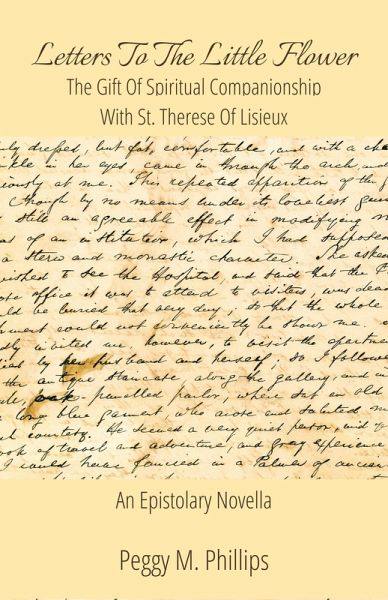 Letters To The Little Flower
The Gift Of Spiritual Companionship
With St. Therese Of Lisieux
dressed, but fat, comfortable, and with a cha
nkle in her eyes, came in through the arch, and
iously at me. This repeated apparition of the
though by no means under its loveliest guis
still an agreeable effect in modifying m
as of an institution, which I had supposed
a stern and monastic character. She asked
wished to see the Hospital, and said that the P
ose office it was to attend to visitors, was dead
uld be buried that very day; so that the whole
hment could not conveniently be shown me.
dly invited me, however, to visit the apartme
ied by her husband and herself; so I followed
the antique staircase, along the gallery, and in
le, oak-panelled parlor, where sat an old
long blue garment, who arose and saluted m
courtesy. He seemed a very quiet person, and y
ook of travel and adventure, and gray experience
I could have fancied in a Palmer of ancien
An Epistolary Novella
Peggy M. Phillips